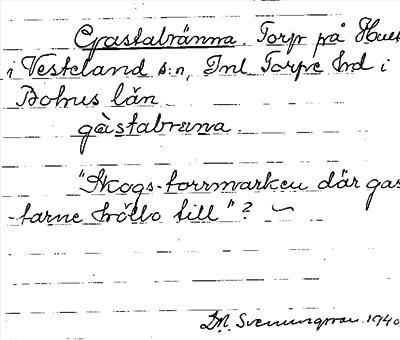 Gastabränna. Torp på Hue
i Vesteland s:n, Inl Torpe hd i
Bohus län
gàstabræna.
"Skogs-torrmarken där gas
-tarne höllo till"?
D.N. Svenungsson 1940